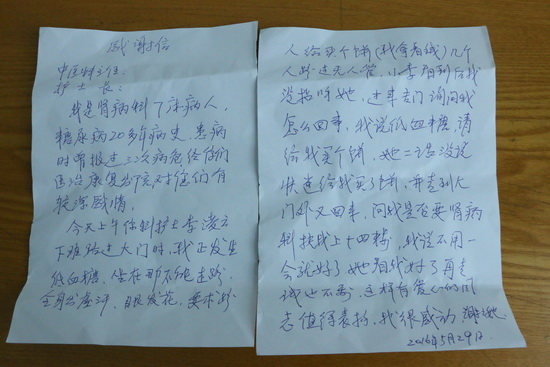 感谢信
中医科主任
护士长：
我是肾病科7床病人，
糖尿病20多年病史，患病
时曾报过二次病危经你们
医治康复出院对你们有
较深感情。
今天上午你科护士李凌云
下班路过大门时，我正发生
低血糖，坐在那不能走路，
全身出虚汗，眼发花，要求路
人给买个饼（我拿着钱）几个
人路过无人管，小李路到后我
没招呼她，过来专门询问我
怎么回事，我说低血糖，请
给我买个饼，她二话没说
快速给我买了饼，并走到大
门外又回来，问我是否要肾病
科扶我上十四楼，我说不用一
会就好了她看我好了再走
钱也不要，这样有爱心的同
志值得表扬，我很感动，谢谢她
2016年5月29日